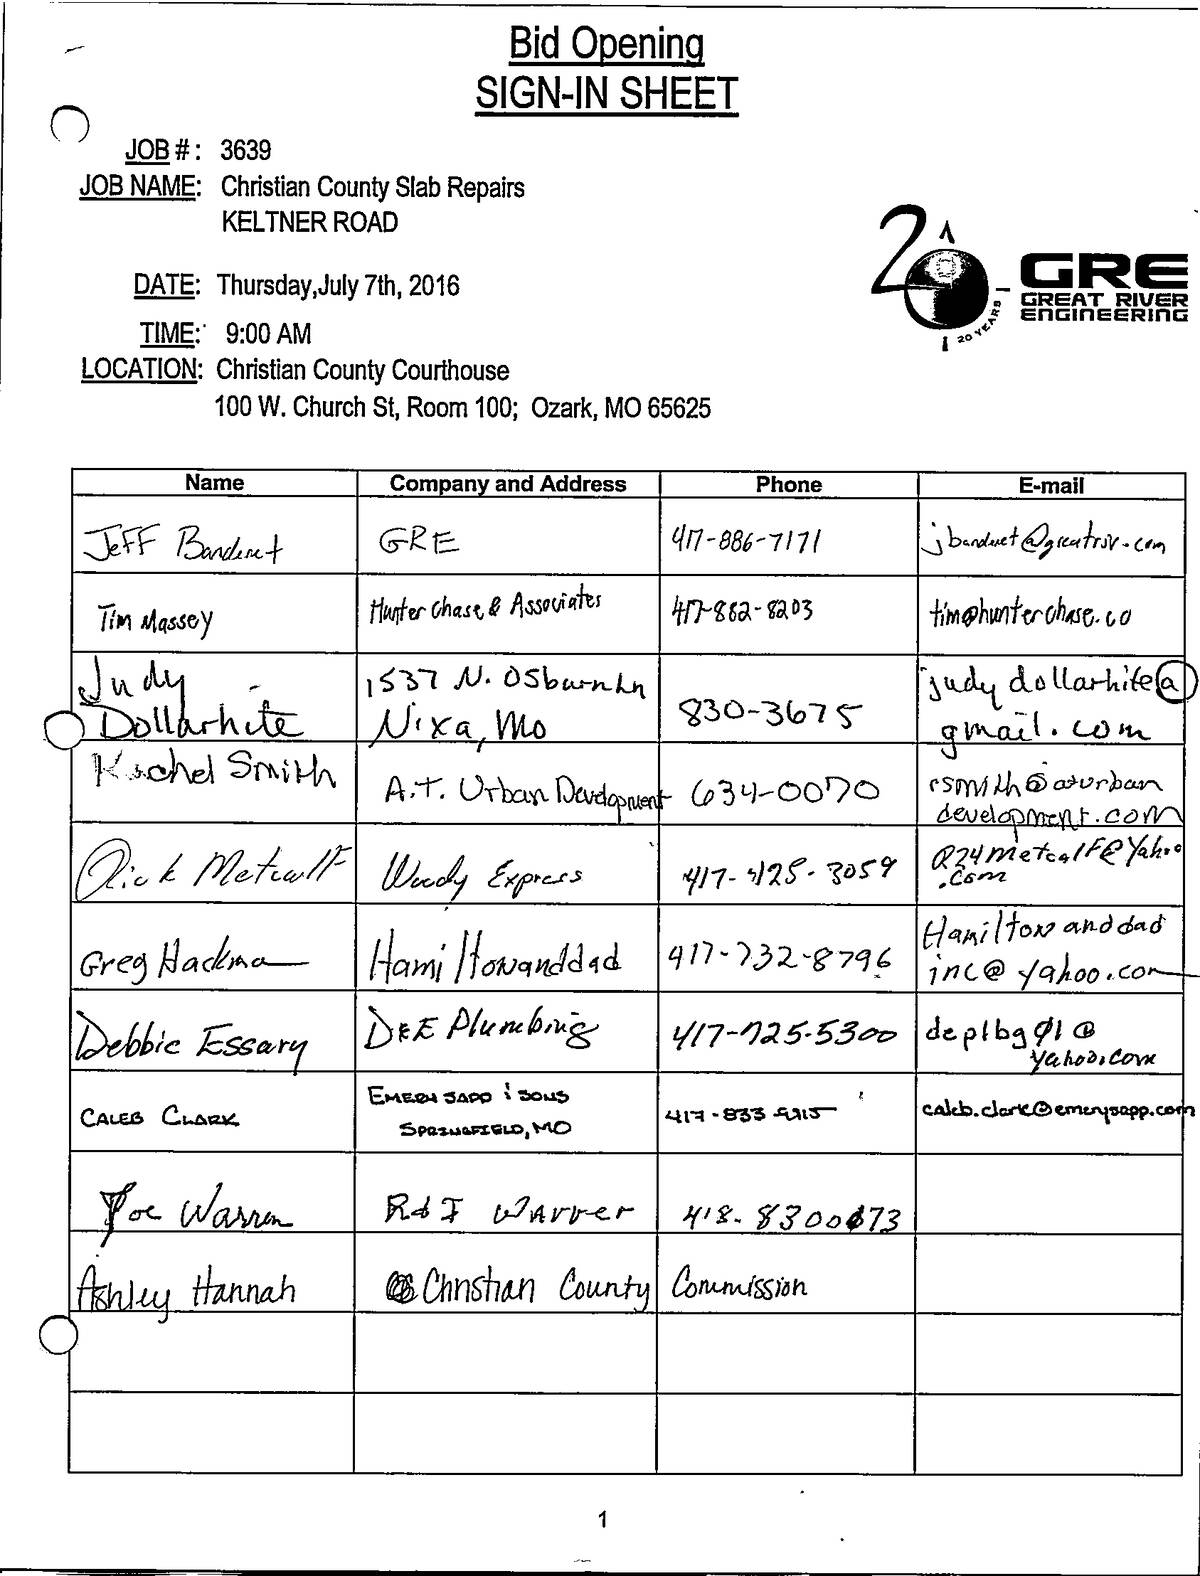 Bid Opening
SIGN-IN SHEET
JOB #: 3639
JOB NAME: Christian County Slab Repairs
KELTNER ROAD
DATE: Thursday,July 7th, 2016
TIME: 9:00 AM
LOCATION: Christian County Courthouse
100 W. Church St, Room 100; Ozark, MO 65625
20
20 YEARS
GRE
GREAT RIVER
ENGINEERING
Name Company and Address Phone E-mail
Jeff Bandenet GRE 417-886-7171 jbandenet@greatriv.com
Tim Massey Hunter Chase & Associates 417-882-8203 tim@hunterchase.co
Judy 1537 N. Osburn Ln judy dollarhite@
Dollarhite Nixa, Mo 830-3675 gmail.com
Rachel Smith A.T. Urban Development 634-0070 rsmith@aturban
development.com
Rick Metcalf Woody Express 417-425-3059 R24metcalf@Yahoo
.com
Greg Hackman Hamiltonanddad 417-732-8796 Hamilton anddad
inc@yahoo.com
Debbie Essary D&E Plumbing 417-725-5300 deplbg01@
yahoo.com
CALEB CLARK EMERY SAPP & SONS caleb.clark@emerysapp.com
SPRINGFIELD, MO 417-833-
Joe Warren R&J Warren 418-
Ashley Hannah Christian County Commission
1